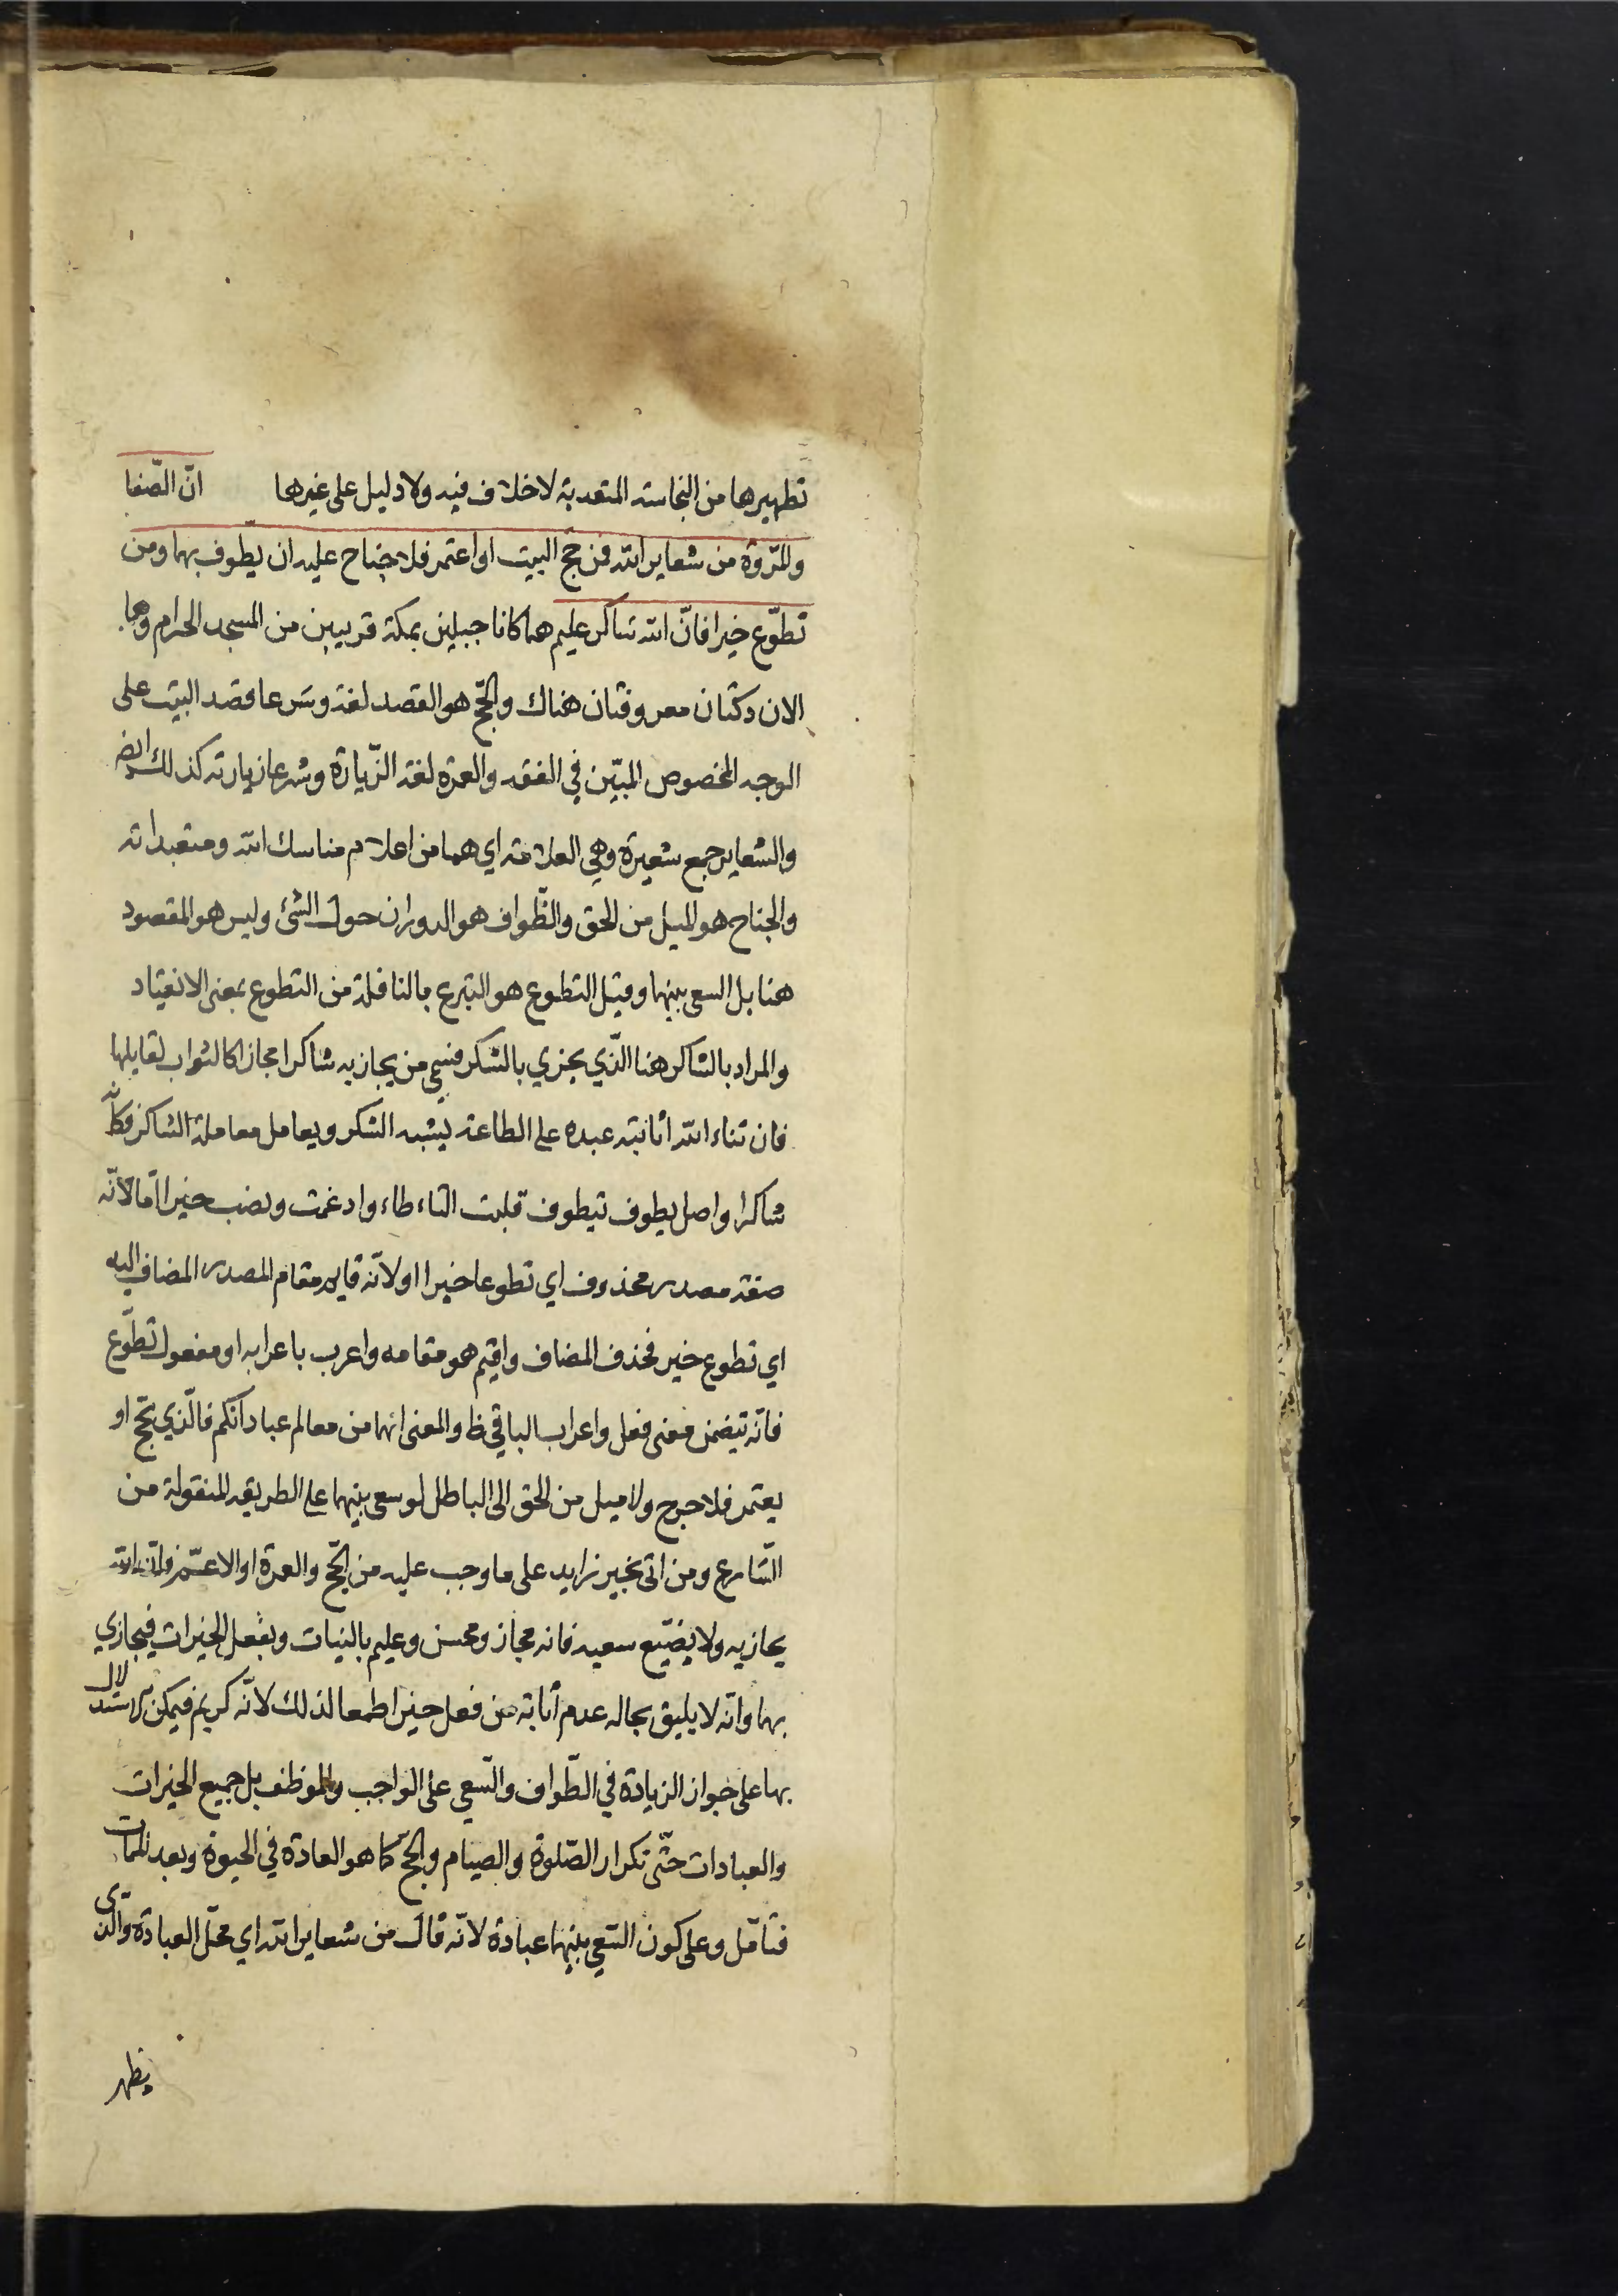 تطهيرها من النجاسة المتعدية لا خلاف فيه ولا دليل على غيرها انّ الصّفا
والمَروة من شعاير الله فمن حجّ البيت او اعتمر فلا جناح عليه ان يطّوف بهما ومن
تطوّع خيرا فانّ الله شاكر عليم هما كانا جبلين بمكة قريبين من المسجد الحرام وهما
الان دكتان معروفتان هناك والحجّ هو القصد لغة وشرعا قصد البيت على
الوجه المخصوص المبيّن في الفقه والعمرة لغة الزّيارة وشرعا زيارته كذلك ايض
والشعاير جمع شعيرة وهي العلامة اي هما من اعلام مناسك الله ومتعبداته
والجناح هو الميل من الحق والطّواف هو الدوران حول الشئ وليس هو المقصود
هنا بل السعى بينهما وقيل التطوع هو التبرع بالنافلة من التطوع بمعنى الانقياد
والمراد بالشاكر هنا الّذي يجزي بالشكر فسمي من يجازيه شاكرا مجازا كالثواب لقايلها
فان ثناء الله اثابته عبده على الطاعة يشبه الشكر ويعامل معاملة الشاكر فكانّه
شاكرا واصل يطوف يتطوف قلبت التاء طاء وادغمت ونصب خيرا امّا لانّه
صفة مصدر محذوف اي تطوعا خيرا او لانّه قايم مقام المصدر المضاف اليه
اي تطوع خير فحذف المضاف واقيم هو مقامه واعرب باعرابه او مفعول تطوّع
فانّه تيضمن معنى فعل واعراب الباقي ظ والمعنى انهما من معالم عباداتكم فالّذي يحّج او
يعتمر فلا حرج ولا ميل من الحق الى الباطل لو سعى بينهما على الطريقه المنقولة من
الشّارع ومن اتى بخير زايد على ما وجب عليه من الحّج والعمرة او الاعمّ فانّ الله
يجازيه ولا يضيّع سعيه فانه مجاز ومحسن وعليم بالنيات وبفعل الخيرات فيجازي
بها وانّه لا يليق بحاله عدم اثابة من فعل خيرا طمعا لذلك لانّه كريم فيمكن الاستدلال
بها على جواز الزيادة في الطّواف والسّعي على الواجب والموظف بل جميع الخيرات
والعبادات حتّى تكرار الصّلوة والصيام والحجّ كما هو العادة في الحيوة وبعد الممات
فتامّل وعلى كون السّعي بينهما عبادة لانّه قال من شعاير الله اي محلّ العبادة والذى
يظهر